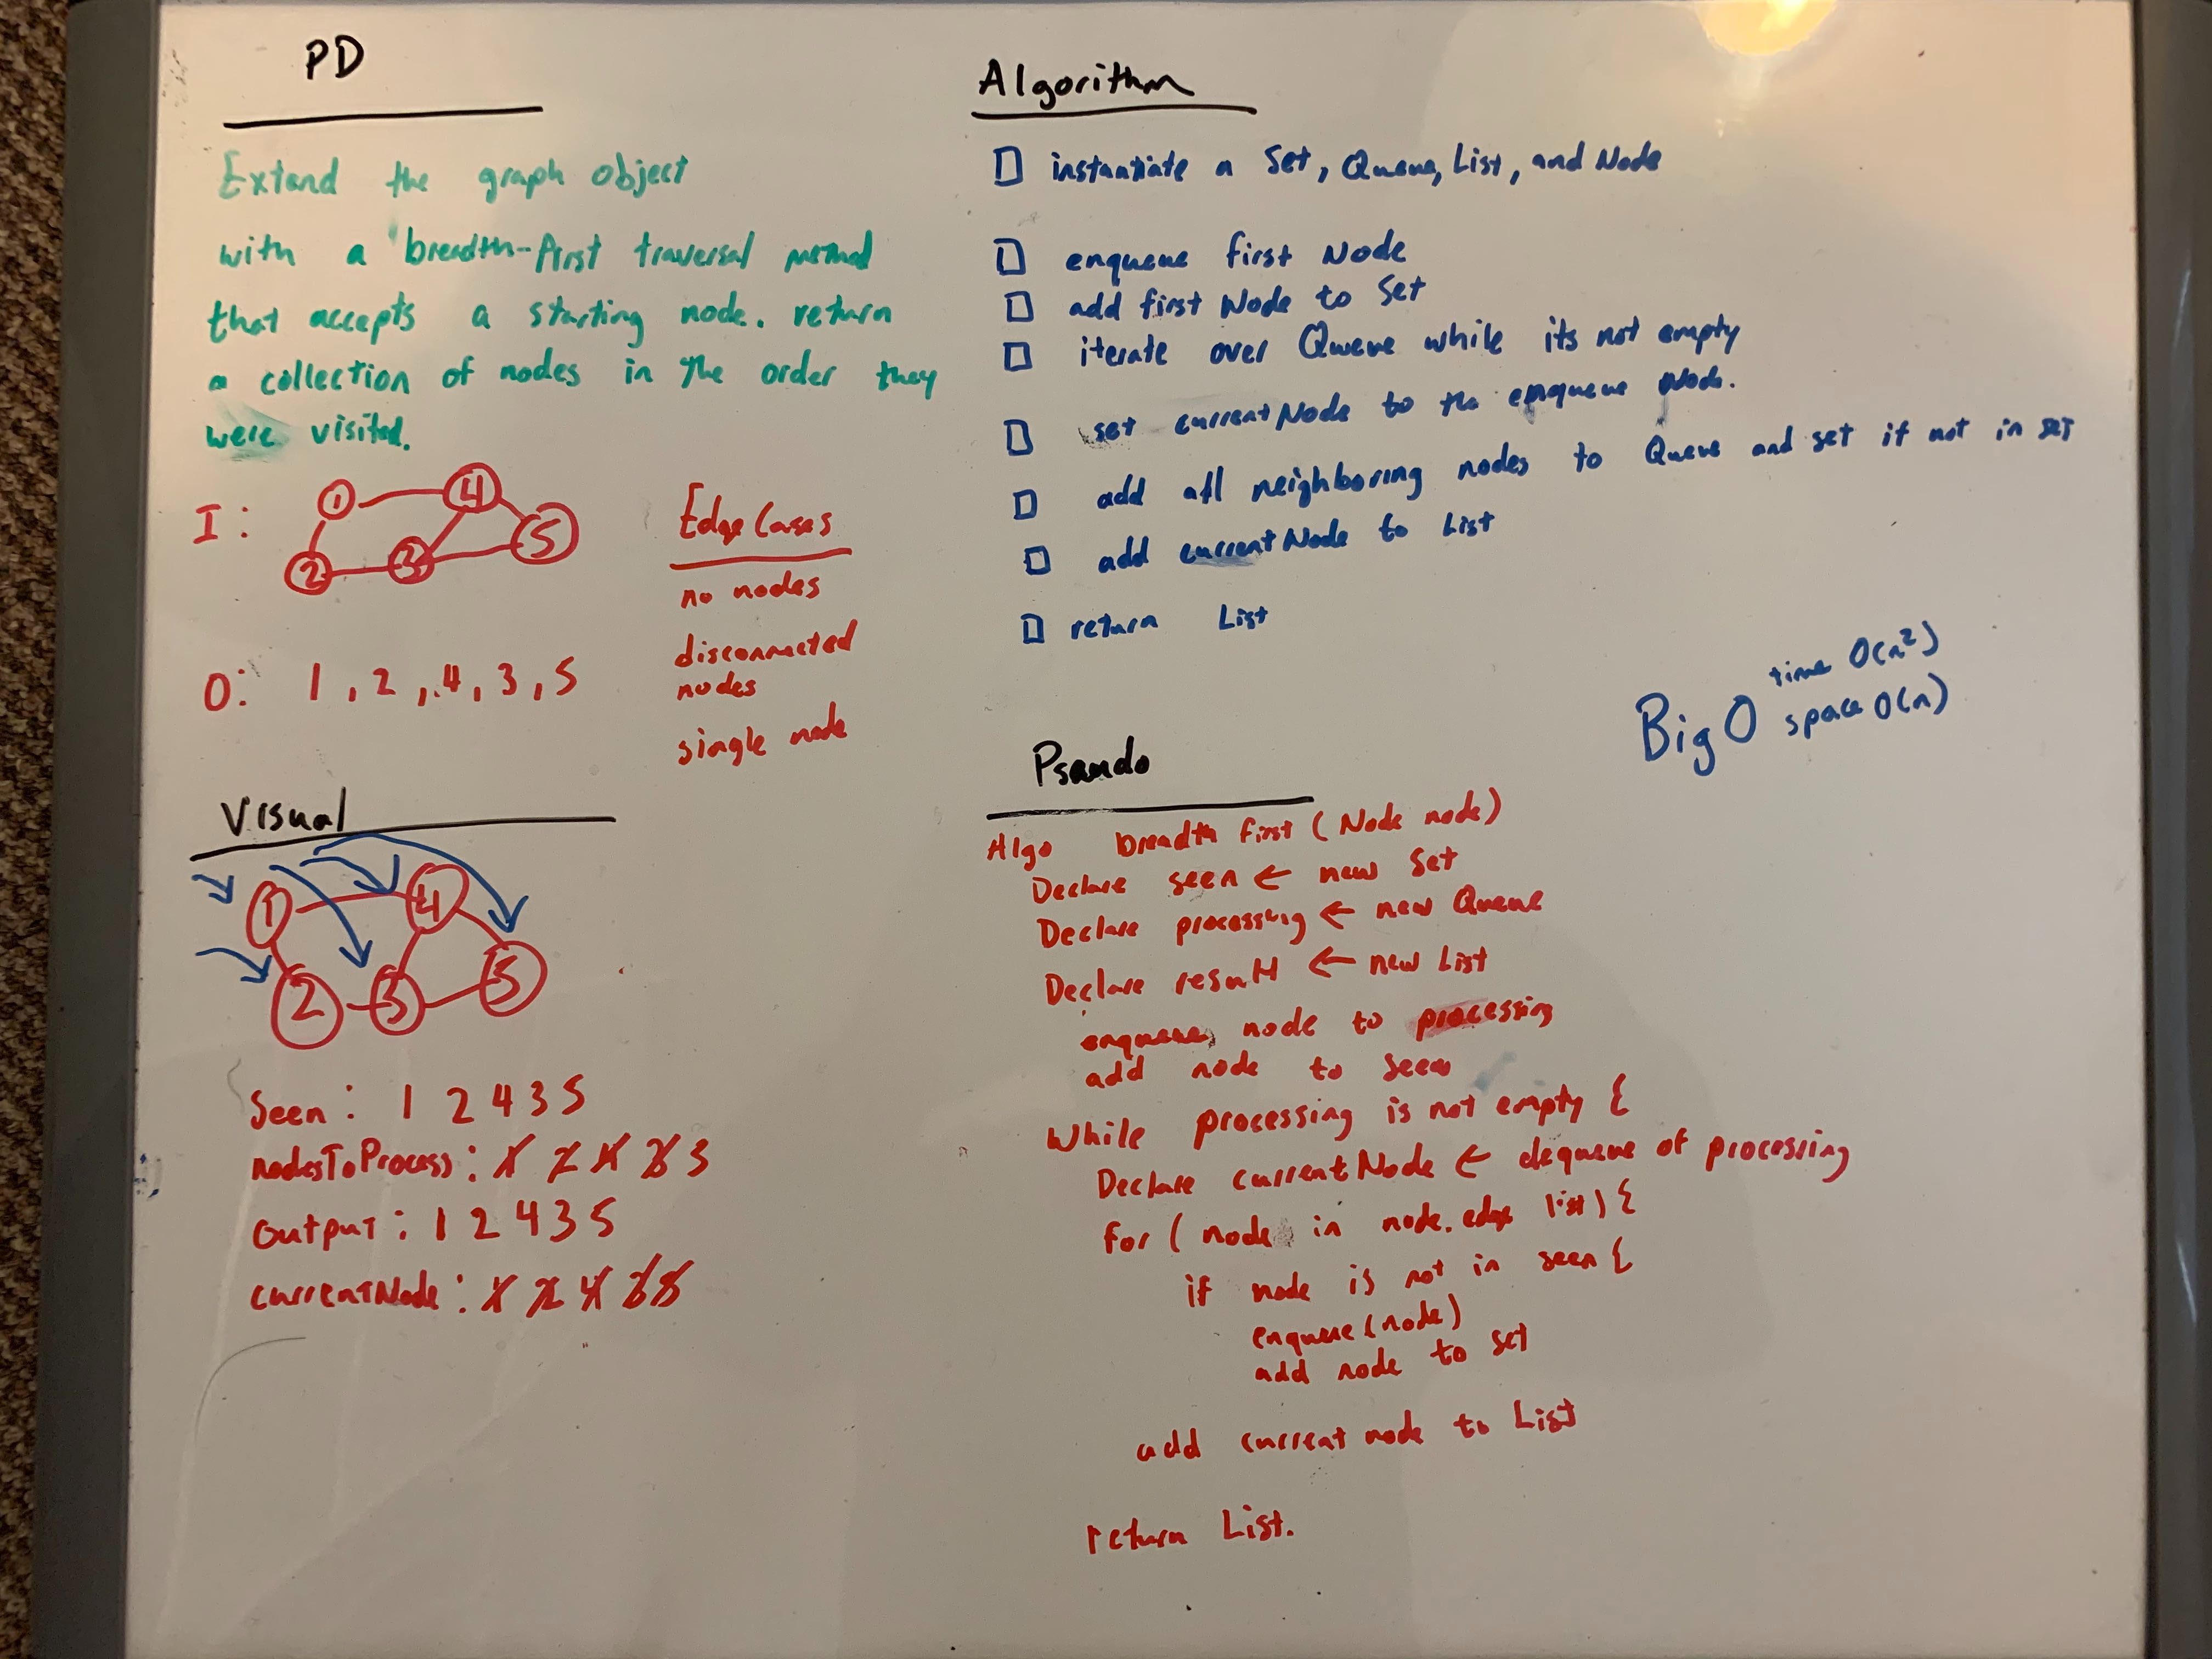 PD
Extend the graph object
with a breadth-first traversal method
that accepts a starting node. return
a collection of nodes in the order they
were visited.
I:
1
4
2
3
5
O: 1, 2, 4, 3, 5
Edge Cases
no nodes
disconnected
nodes
single node
Visual
1
4
2
3
5
Seen: 1 2 4 3 5
nodesToProcess: 1 2 4 3 5
Output: 1 2 4 3 5
currentNode: 1 2 4 3 5
Algorithm
instantiate a Set, Queue, List, and Node
enqueue first Node
add first Node to Set
iterate over Queue while its not empty
set currentNode to the enqueue Node.
add all neighboring nodes to Queue and set if not in set
add currentNode to List
return List
Big O time O(n²)
space O(n)
Pseudo
Algo breadth first (Node node)
Declare seen ← new Set
Declare processing ← new Queue
Declare result ← new List
enqueue node to processing
add node to seen
While processing is not empty {
Declare currentNode ← dequeue of processing
for ( node in node.edge list) {
if node is not in seen {
enqueue (node)
add node to set
add current node to List
return List.